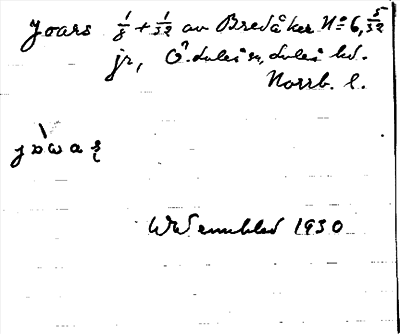 Joars 1/8 + 1/32 av Bredåker N:o 6, 5/32
jr, Ö. Luleå sn, Luleå hd.
Norrb. l.
Wennblad 1930